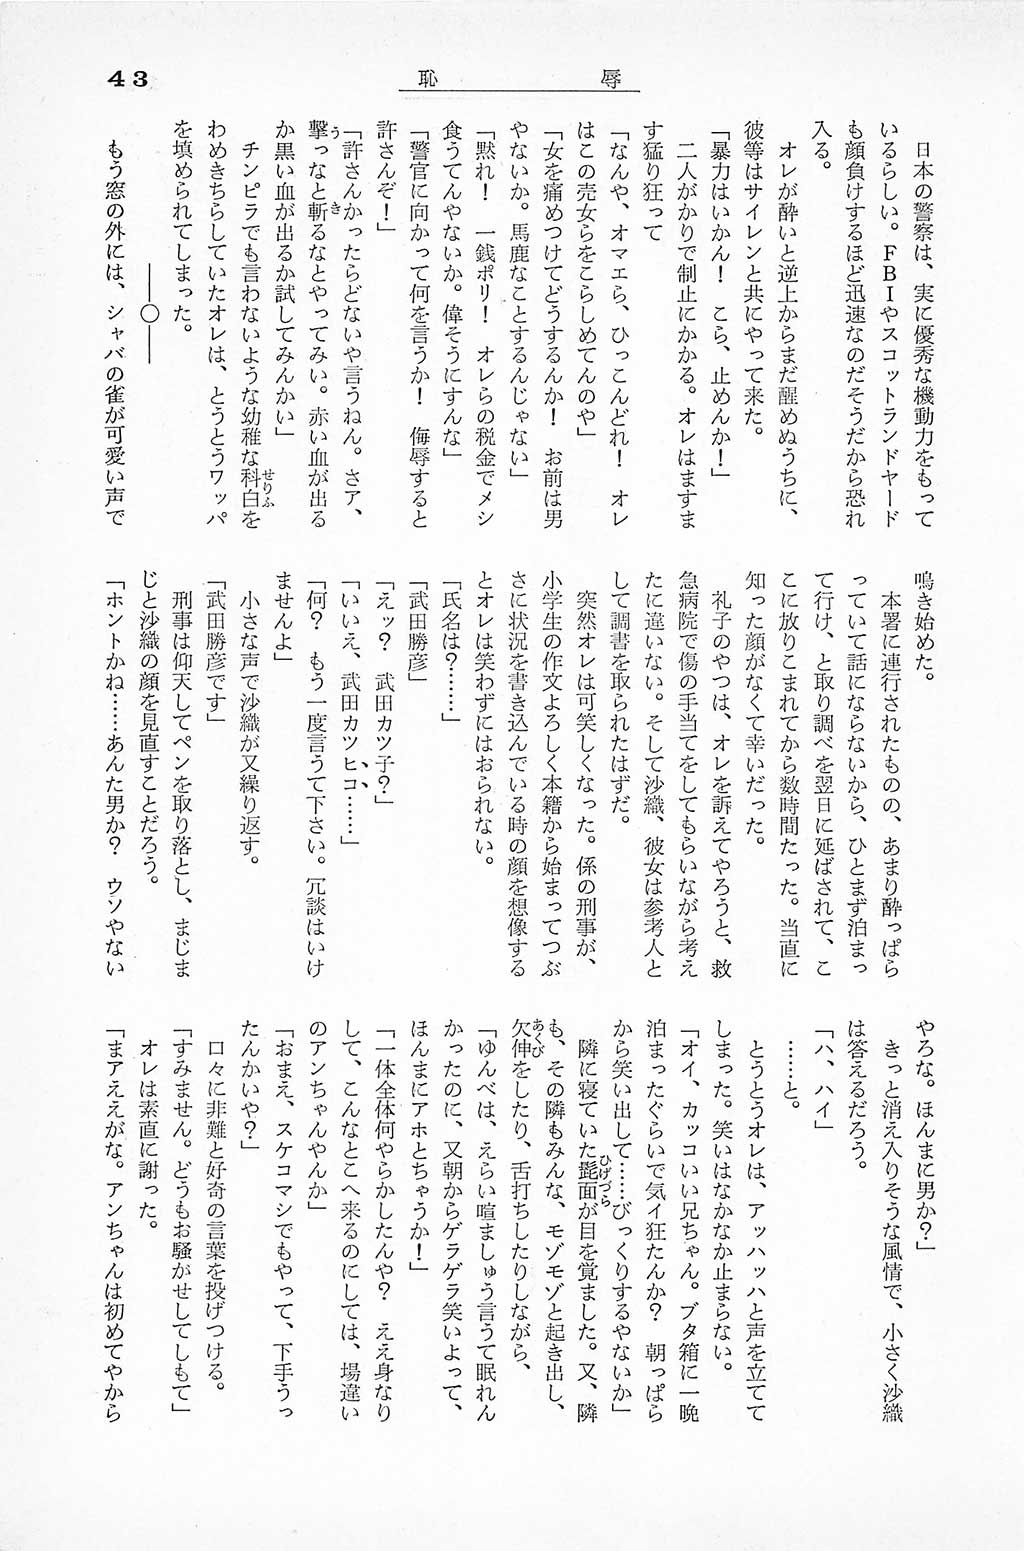 43
恥辱
日本の警察は、実に優秀な機動力をもって
いるらしい。FBIやスコットランドヤード
も顔負けするほど迅速なのだそうだから恐れ
入る。
オレが酔いと逆上からまだ醒めぬうちに、
彼等はサイレンと共にやって来た。
「暴力はいかん！　こら、止めんか！」
二人がかりで制止にかかる。オレはますま
す猛り狂って
「なんや、オマエら、ひっこんどれ！　オレ
はこの売女らをこらしめてんのや」
「女を痛めつけてどうするんか！　お前は男
やないか。馬鹿なことするんじゃない」
「黙れ！　一銭ポリ！　オレらの税金でメシ
食うてんやないか。偉そうにすんな」
「警官に向かって何を言うか！　侮辱すると
許さんぞ！」
「許さんかったらどないや言うねん。さア、
撃っなと斬るなとやってみい。赤い血が出る
か黒い血が出るか試してみんかい」
チンピラでも言わないような幼稚な科白を
わめきちらしていたオレは、とうとうワッパ
を填められてしまった。
――〇――
もう窓の外には、シャバの雀が可愛い声で
鳴き始めた。
本署に連行されたものの、あまり酔っぱら
っていて話にならないから、ひとまず泊まっ
て行け、と取り調べを翌日に延ばされて、こ
こに放りこまれてから数時間たった。当直に
知った顔がなくて幸いだった。
礼子のやつは、オレを訴えてやろうと、救
急病院で傷の手当てをしてもらいながら考え
たに違いない。そして沙織、彼女は参考人と
して調書を取られたはずだ。
突然オレは可笑しくなった。係の刑事が、
小学生の作文よろしく本籍から始まってつぶ
さに状況を書き込んでいる時の顔を想像する
とオレは笑わずにはおられない。
「氏名は？……」
「武田勝彦」
「えッ？　武田カツ子？」
「いいえ、武田カツヒコ……」
「何？　もう一度言うて下さい。冗談はいけ
ませんよ」
小さな声で沙織が又繰り返す。
「武田勝彦です」
刑事は仰天してペンを取り落とし、まじま
じと沙織の顔を見直すことだろう。
「ホントかね……あんた男か？　ウソやない
やろな。ほんまに男か？」
きっと消え入りそうな風情で、小さく沙織
は答えるだろう。
「ハ、ハイ」
……と。
とうとうオレは、アッハッハと声を立てて
しまった。笑いはなかなか止まらない。
「オイ、カッコいい兄ちゃん。ブタ箱に一晩
泊まったぐらいで気イ狂たんか？　朝っぱら
から笑い出して……びっくりするやないか」
隣に寝ていた髭面が目を覚ました。又、隣
も、その隣もみんな、モゾモゾと起き出し、
欠伸をしたり、舌打ちしたりしながら、
「ゆんべは、えらい喧ましゅう言うて眠れん
かったのに、又朝からゲラゲラ笑いよって、
ほんまにアホとちゃうか！」
「一体全体何やらかしたんや？　ええ身なり
して、こんなとこへ来るのにしては、場違い
のアンちゃんやんか」
「おまえ、スケコマシでもやって、下手うっ
たんかいや？」
口々に非難と好奇の言葉を投げつける。
「すみません。どうもお騒がせしてしもて」
オレは素直に謝った。
「まアええがな。アンちゃんは初めてやから